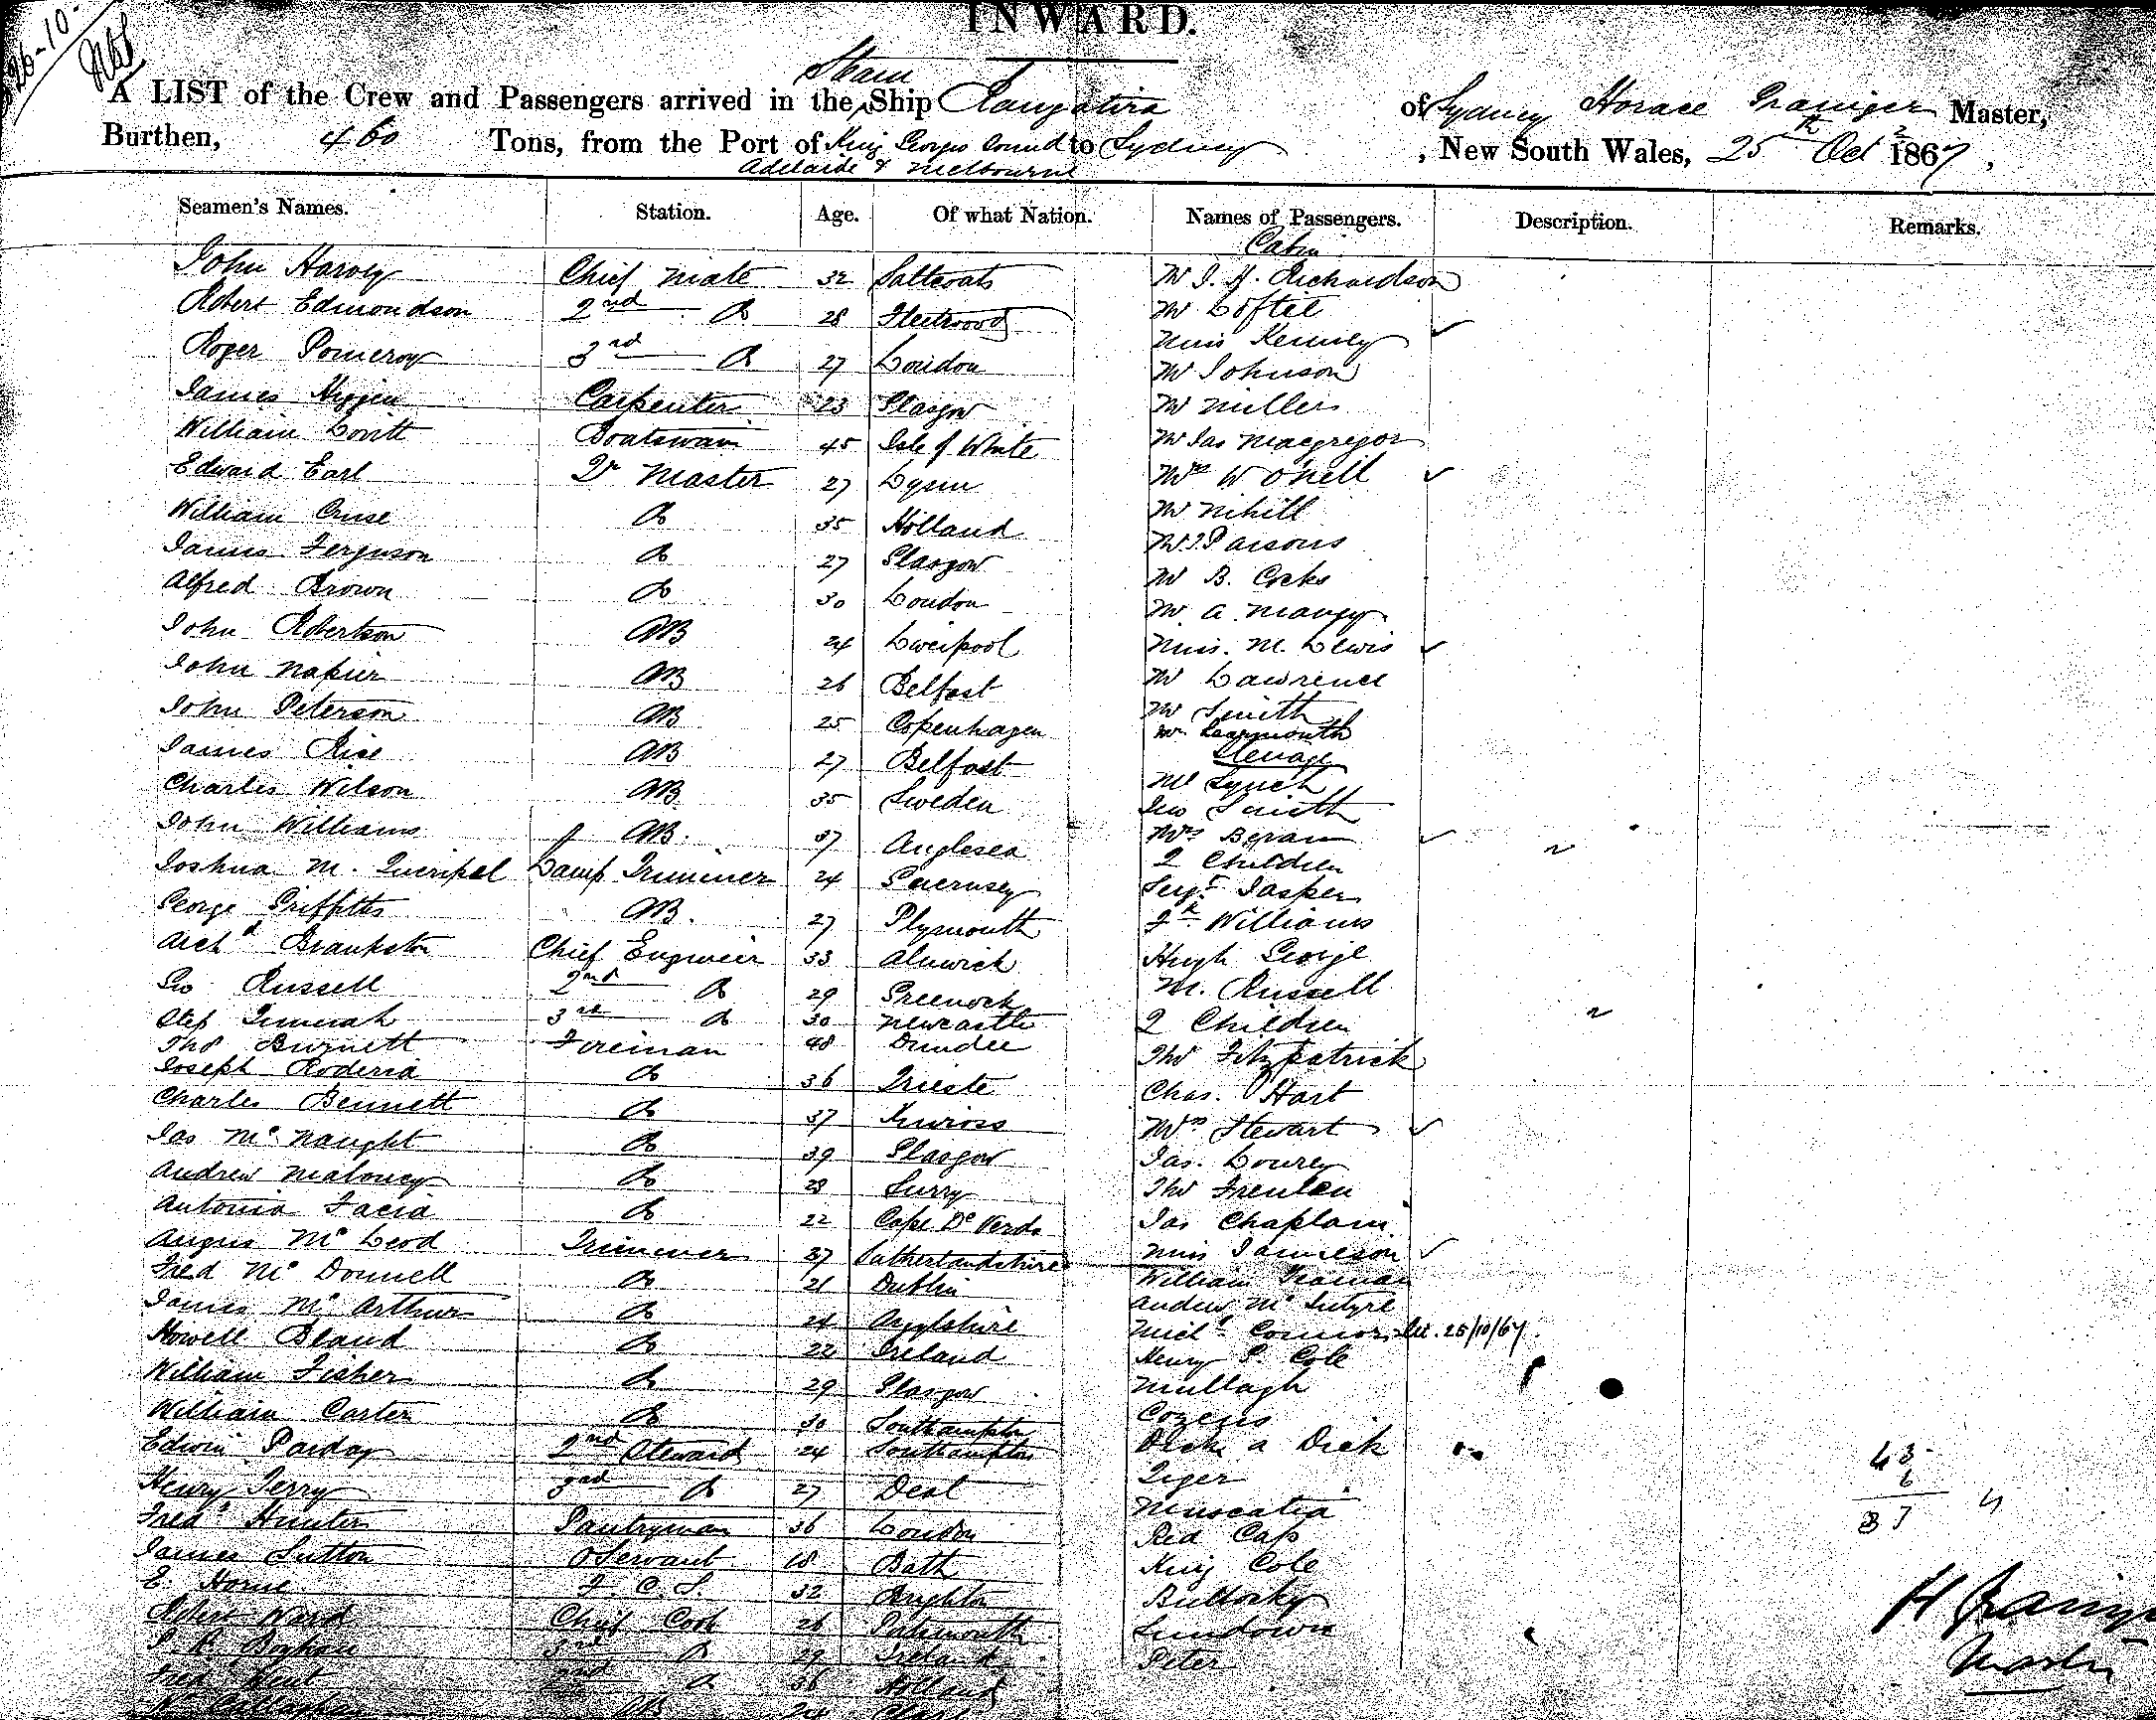 INWARD.
26-10-
Steam
A LIST of the Crew and Passengers arrived in the Ship Rangatira of Sydney Horace Grainger Master,
Burthen, 460 Tons, from the Port of King Georges Sound to Sydney, New South Wales, 25th Oct 1867,
Adelaide & Melbourne
Seamen's Names. Station. Age. Of what Nation. Names of Passengers. Description. Remarks.
Cabin
John Harvey Chief Mate 32 Saltcoats Mr J. H. Richardson
Robert Edmondson 2nd Do 28 Fleetwood Mr Loftel
Roger Pomeroy 3rd Do 27 London Miss Kennedy
Mr Johnson
James Higgin Carpenter 23 Glasgow Mr Millers
William Boatswain 45 Isle of White Mr Jas Macgregor
Edward Earl Qr Master 27 Mrs W O'Neill
William Cruse Do 35 Holland Mr Nihill
James Ferguson Do 27 Glasgow Mr J Parsons
Mr B. Cocks
Alfred Brown Do 30 London Mr A.
John Robertson AB 24 Liverpool Miss. M. Lewis
John Napier AB 26 Belfast Mr Lawrence
John Peterson AB 25 Copenhagen Mr Smith
Mr Learmouth
James Rice AB 27 Belfast Steerage
Mc Lynch
Charles Wilson AB 35 Sweden Geo Smith
John Williams AB. 37 Anglesea Mrs
2 Children
Joshua M. Queripel Lamp Trimmer 24 Guernsey Sergt Jasper
George Griffiths AB. 27 Plymouth Williams
Archd Brankston Chief Engineer 33 Alnwick Hugh George
Geo Russell 2nd Do 29 Greenock M. Russell
Step 3rd Do 30 Newcastle 2 Children
Thos Burnett Fireman 48 Dundee Thos Fitzpatrick
Joseph Roderia Do 36 Trieste Chas. Hart
Charles Bennett Do 37 Kinross Mrs Stewart
Jas McNaught Do 39 Glasgow Jas. Lowrey
Andrew Maloney Do 28 Surry Thos
Antonia Facia Do 22 Cape De Verds Jas Chaplain
Angus McLeod Trimmer 27 Sutherlandshire Miss Jamieson
Fred McDonnell Do 21 Dublin William
Andrew McIntyre
James McArthur Do 24 Argylshire Michl Connor 25/10/67
Howell Bland Do 22 Ireland Henry Cole
William Fisher Do 29 Glasgow Mullagh
William Carter Do 30 Southampton Cozens
Edwin Parday 2nd Steward 24 Southampton Dick a Dick
Henry Terry 3rd Do 27 Deal Tiger
Fredk Hunter Pantryman 36 London Red Cap
James Sutton O Servant 18 Bath King Cole
E. Horne F. C. S. 32 Brighton Bullocky
Robert Ward Chief Cook 26 Sundown
3rd Do 29 Ireland Peter
Fred Kent 2nd Do 36 Holland
Callaghan AB 24
43
6
37
H Grainger
Master